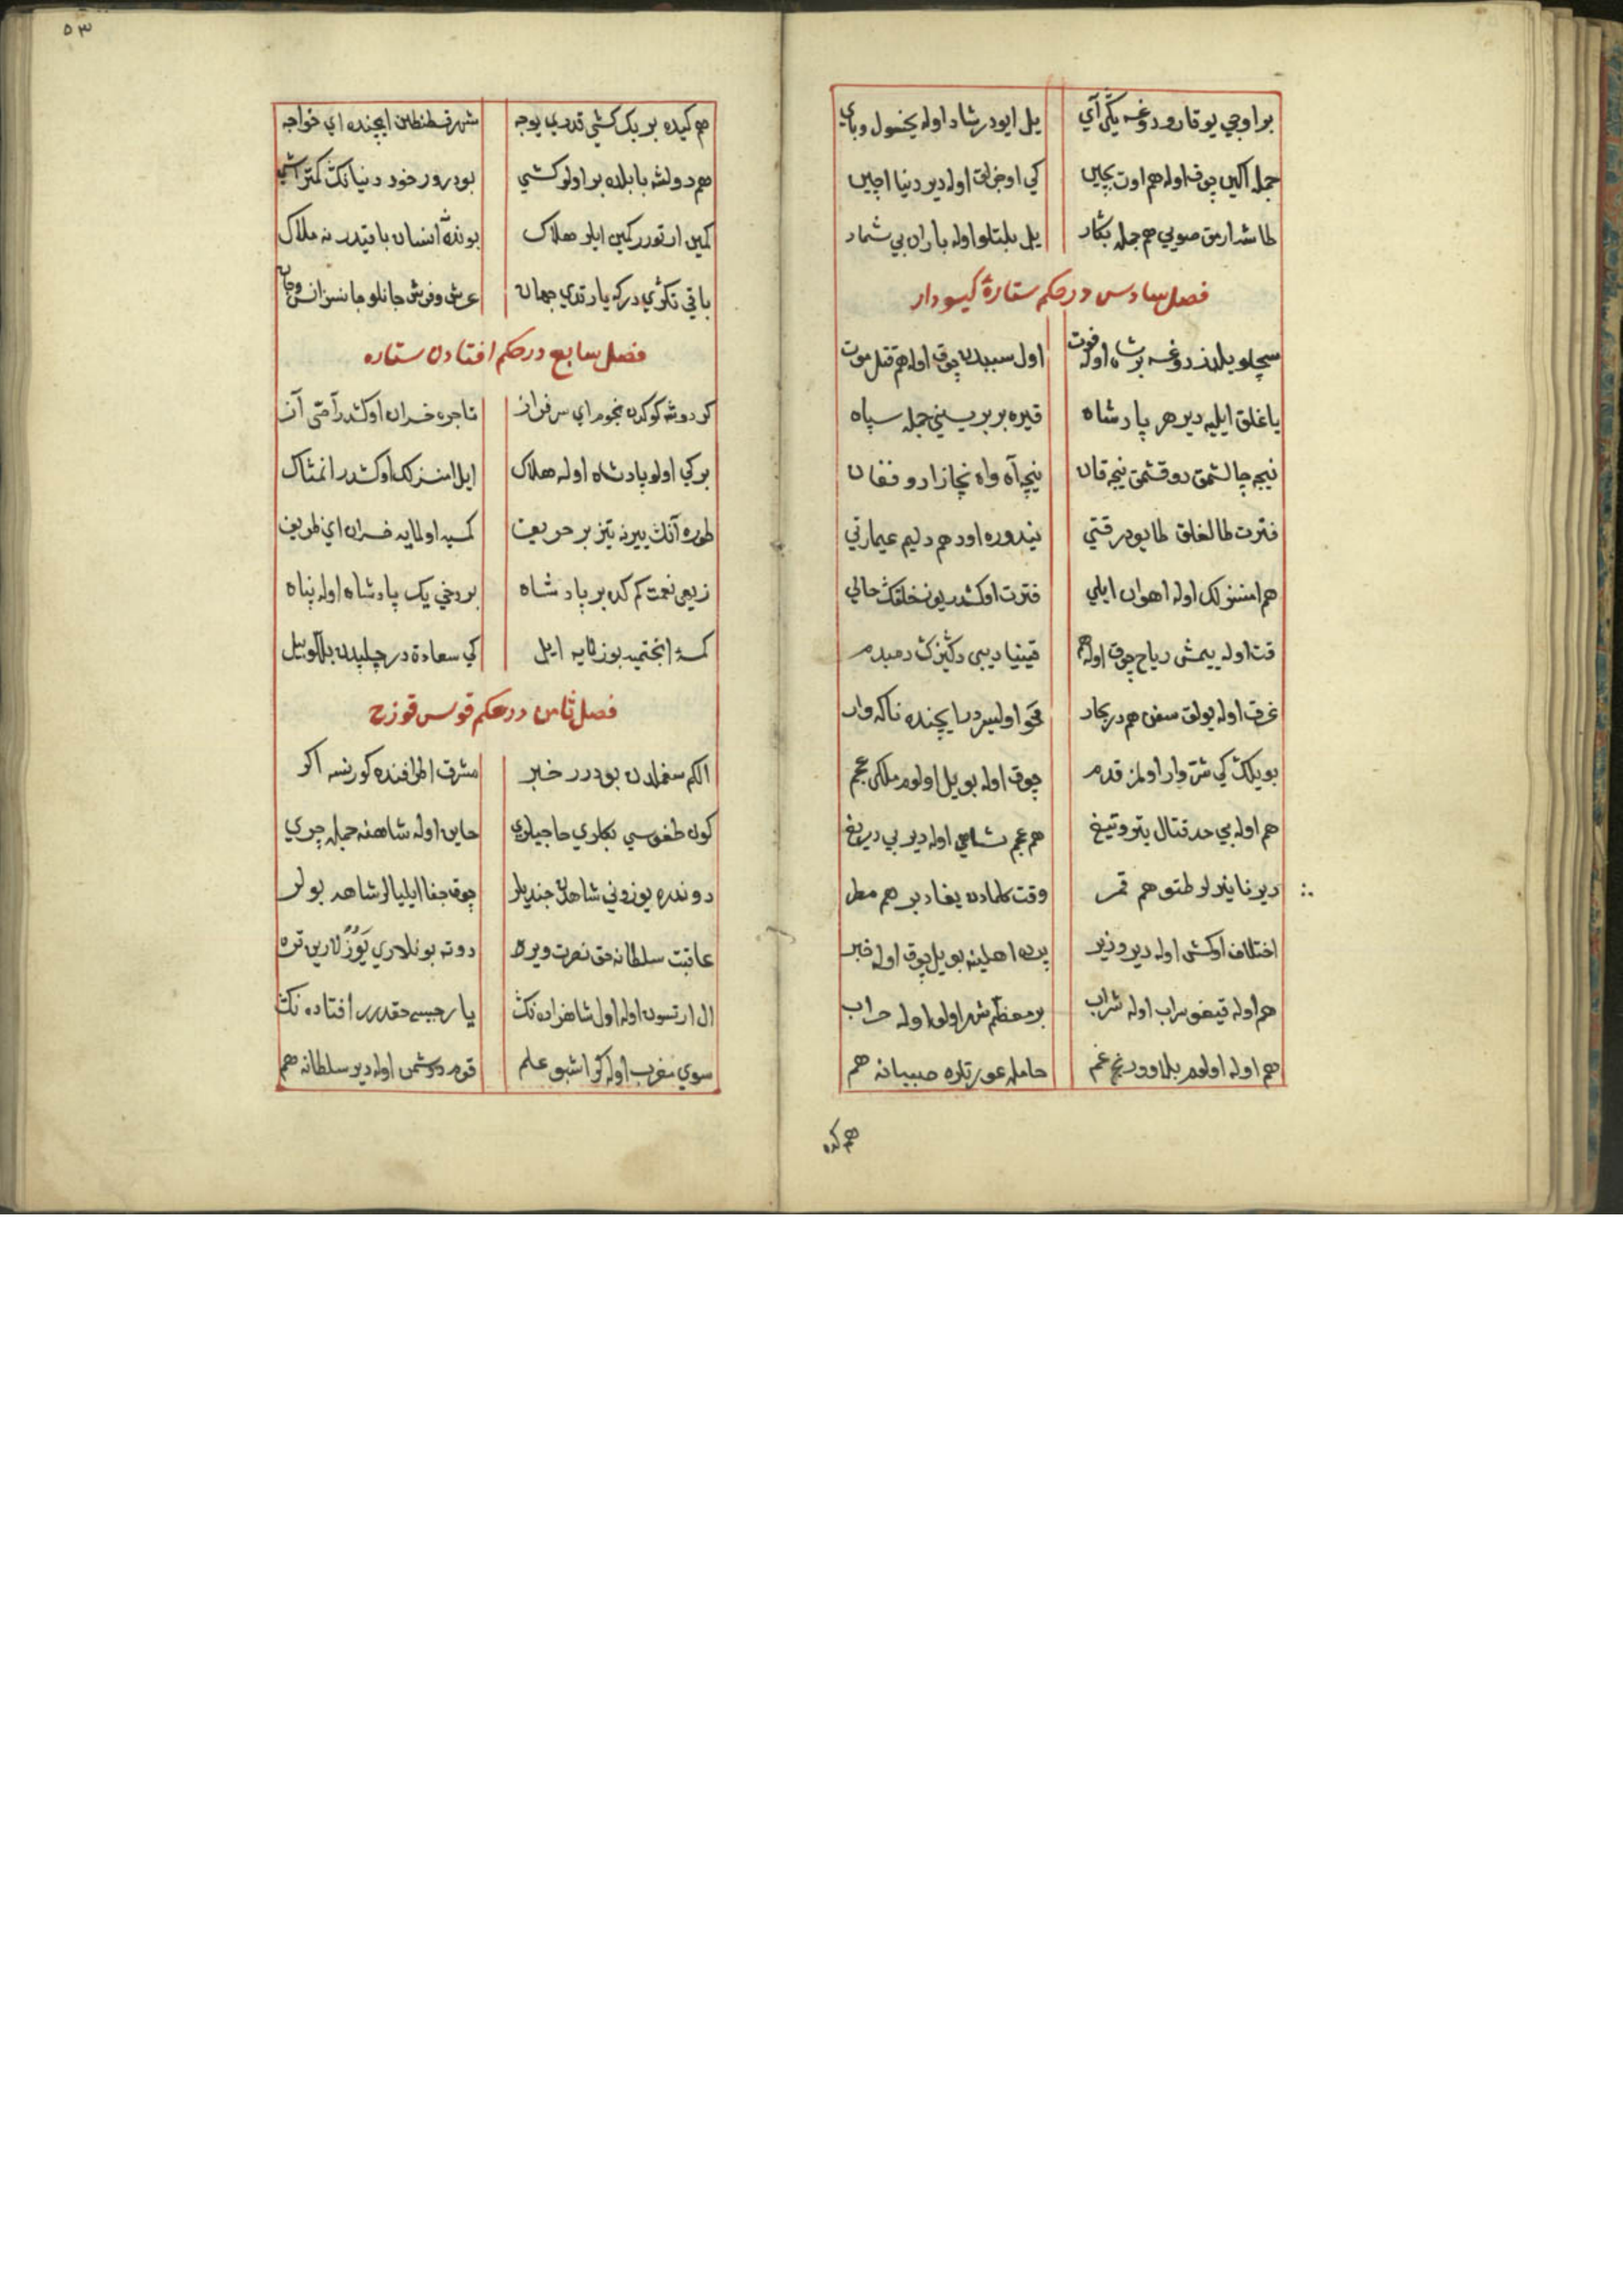 بر اوجي يوقارو دوغسه يكي آي يل ايودر شاد اوله يخسول و باي
جمله اكين چوق اوله هم اوت بچين كي اوجزلق اوله دير دنيا اچين
طاشدارمق صويي هم جمله بكار يل بلتلو اوله باران بي شمار
فصل سادس در حكم ستارۀ كيسودار
سچلو يلدز دوغسه بر شاه اوله فوت اول سببدن چوق اوله هم قتل موت
ياغلق ايليه دير هر پادشاه قيره بر بريسني جمله سپاه
نيجه چالشمق دوقشمق نيجه قان نيچه آه واه نچا زار و فغان
فترت طالغلق طايودر قتي يندوره اود هم دليم عيمارتي
هم امنسزلك اوله اهوان ايلي فترت اوكشدر بونه خلقك حالي
قت اوله ييمش رياح چوق اوله هم قينيا ديبى دكزك دمبدم
غرق اوله يولق سفن هم در بحار محو اوليسر دريا ايچنده ناكه وار
بو يلك كي شر وار اولمز قدم چوق اوله بو يل اولوم ملكى عجم
هم اوله بي حد قتال يتر و تيغ هم عجم شاهي اوله دير بي دريغ
دير نا ينرلر طتو هم قمر وقت كلمادن يغا دير هم مطر
اختلاف اوكش اوله دير وزير يرده اهلينه بو يل چوق اوله قبر
هم اوله قيغو سراب اوله شراب بر معظم شهر اولو اوله خراب
هم اوله اولوم بلا و درنج غم حامله عورتلره صبيانه هم
هم كده
٥٣
هم كيده بر بك كشي قدري يوجه شهر قسطنطين ايچنده اي خواجه
هم دولشه بابلده بر اولو كشي بودرور خود دنيانك كمتر ايشي
كمين ارتورر كمين ايلر هلاك بونده انسان باقيدر نه ملاك
باقي تكري دركه ياردتدي جهان عرش و فرش جانلو جانسز انس و جان
فصل سابع در حكم افتادن ستاره
كر دوشه كوكدن نجوم اي سرفراز تاجره خسران اوكشدر آصى آز
بركي اولو پادشاه اوله هلاك ايل امنسزلك اوكشدر انمناك
طوره آنك ييرنه تيز بر حريف كمسيه اولمايه خسران اي ظريف
زيهى نعمت كم كده بر پادشاه بر دخي يك پادشاه اوله پناه
كمسه انجتميه بوزلمايه ايل كي سعادة در چلپدن بللو بيل
فصل ثامن در حكم قوس قوزح
الكم سغملدن بودرر خبر مشرق اطرافنده كورنسه اكر
كون طغوسي بكلري حاجيلري خاين اوله شاهنه جمله چري
دوندره يوزوني شاهدن جنديلر چوق جفا ايليالر شاهه بولر
عاقبت سلطانه حق نصرت ويره دوته بونلاري يوزلارين قره
ال ارتسون اوله اول شاهزاده نك يا رجيسى حقدرر افتاده نك
سوي مغرب اوله كر اشبو علم قوم دوشمن اوله دير سلطانه هم